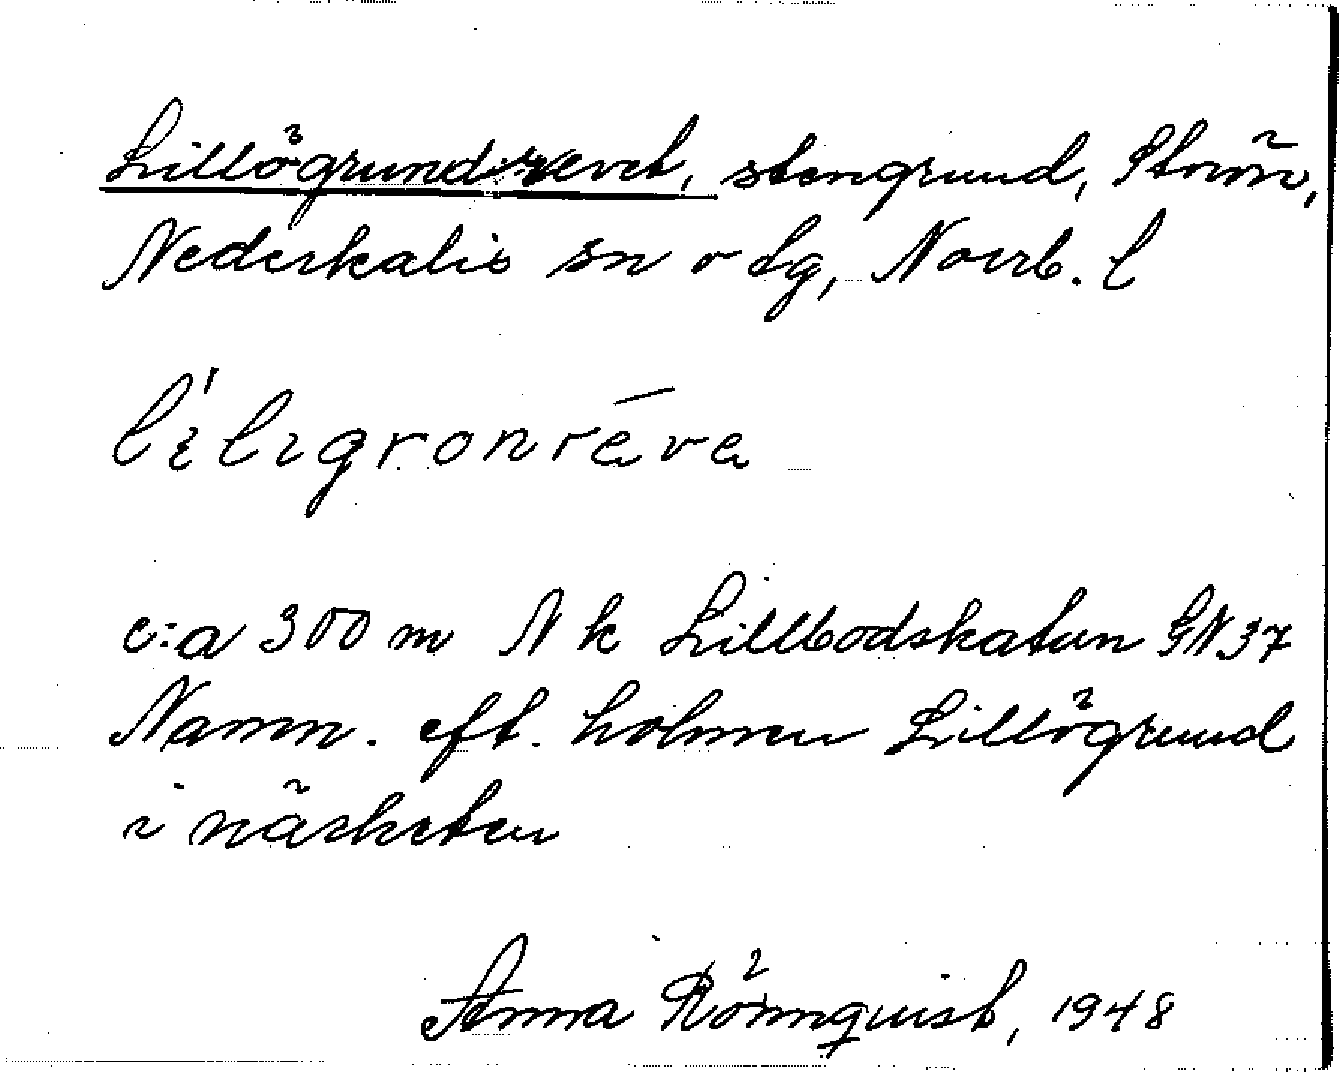 Lillögrundsrevet, stengrund, Storön,
Nederkalix sn o tg, Norrb. l
c:a 300 m N k Lillbodskatan GN 37
Namn. eft. holmen Lillögrund
i närheten
Anna Rönnquist, 1948